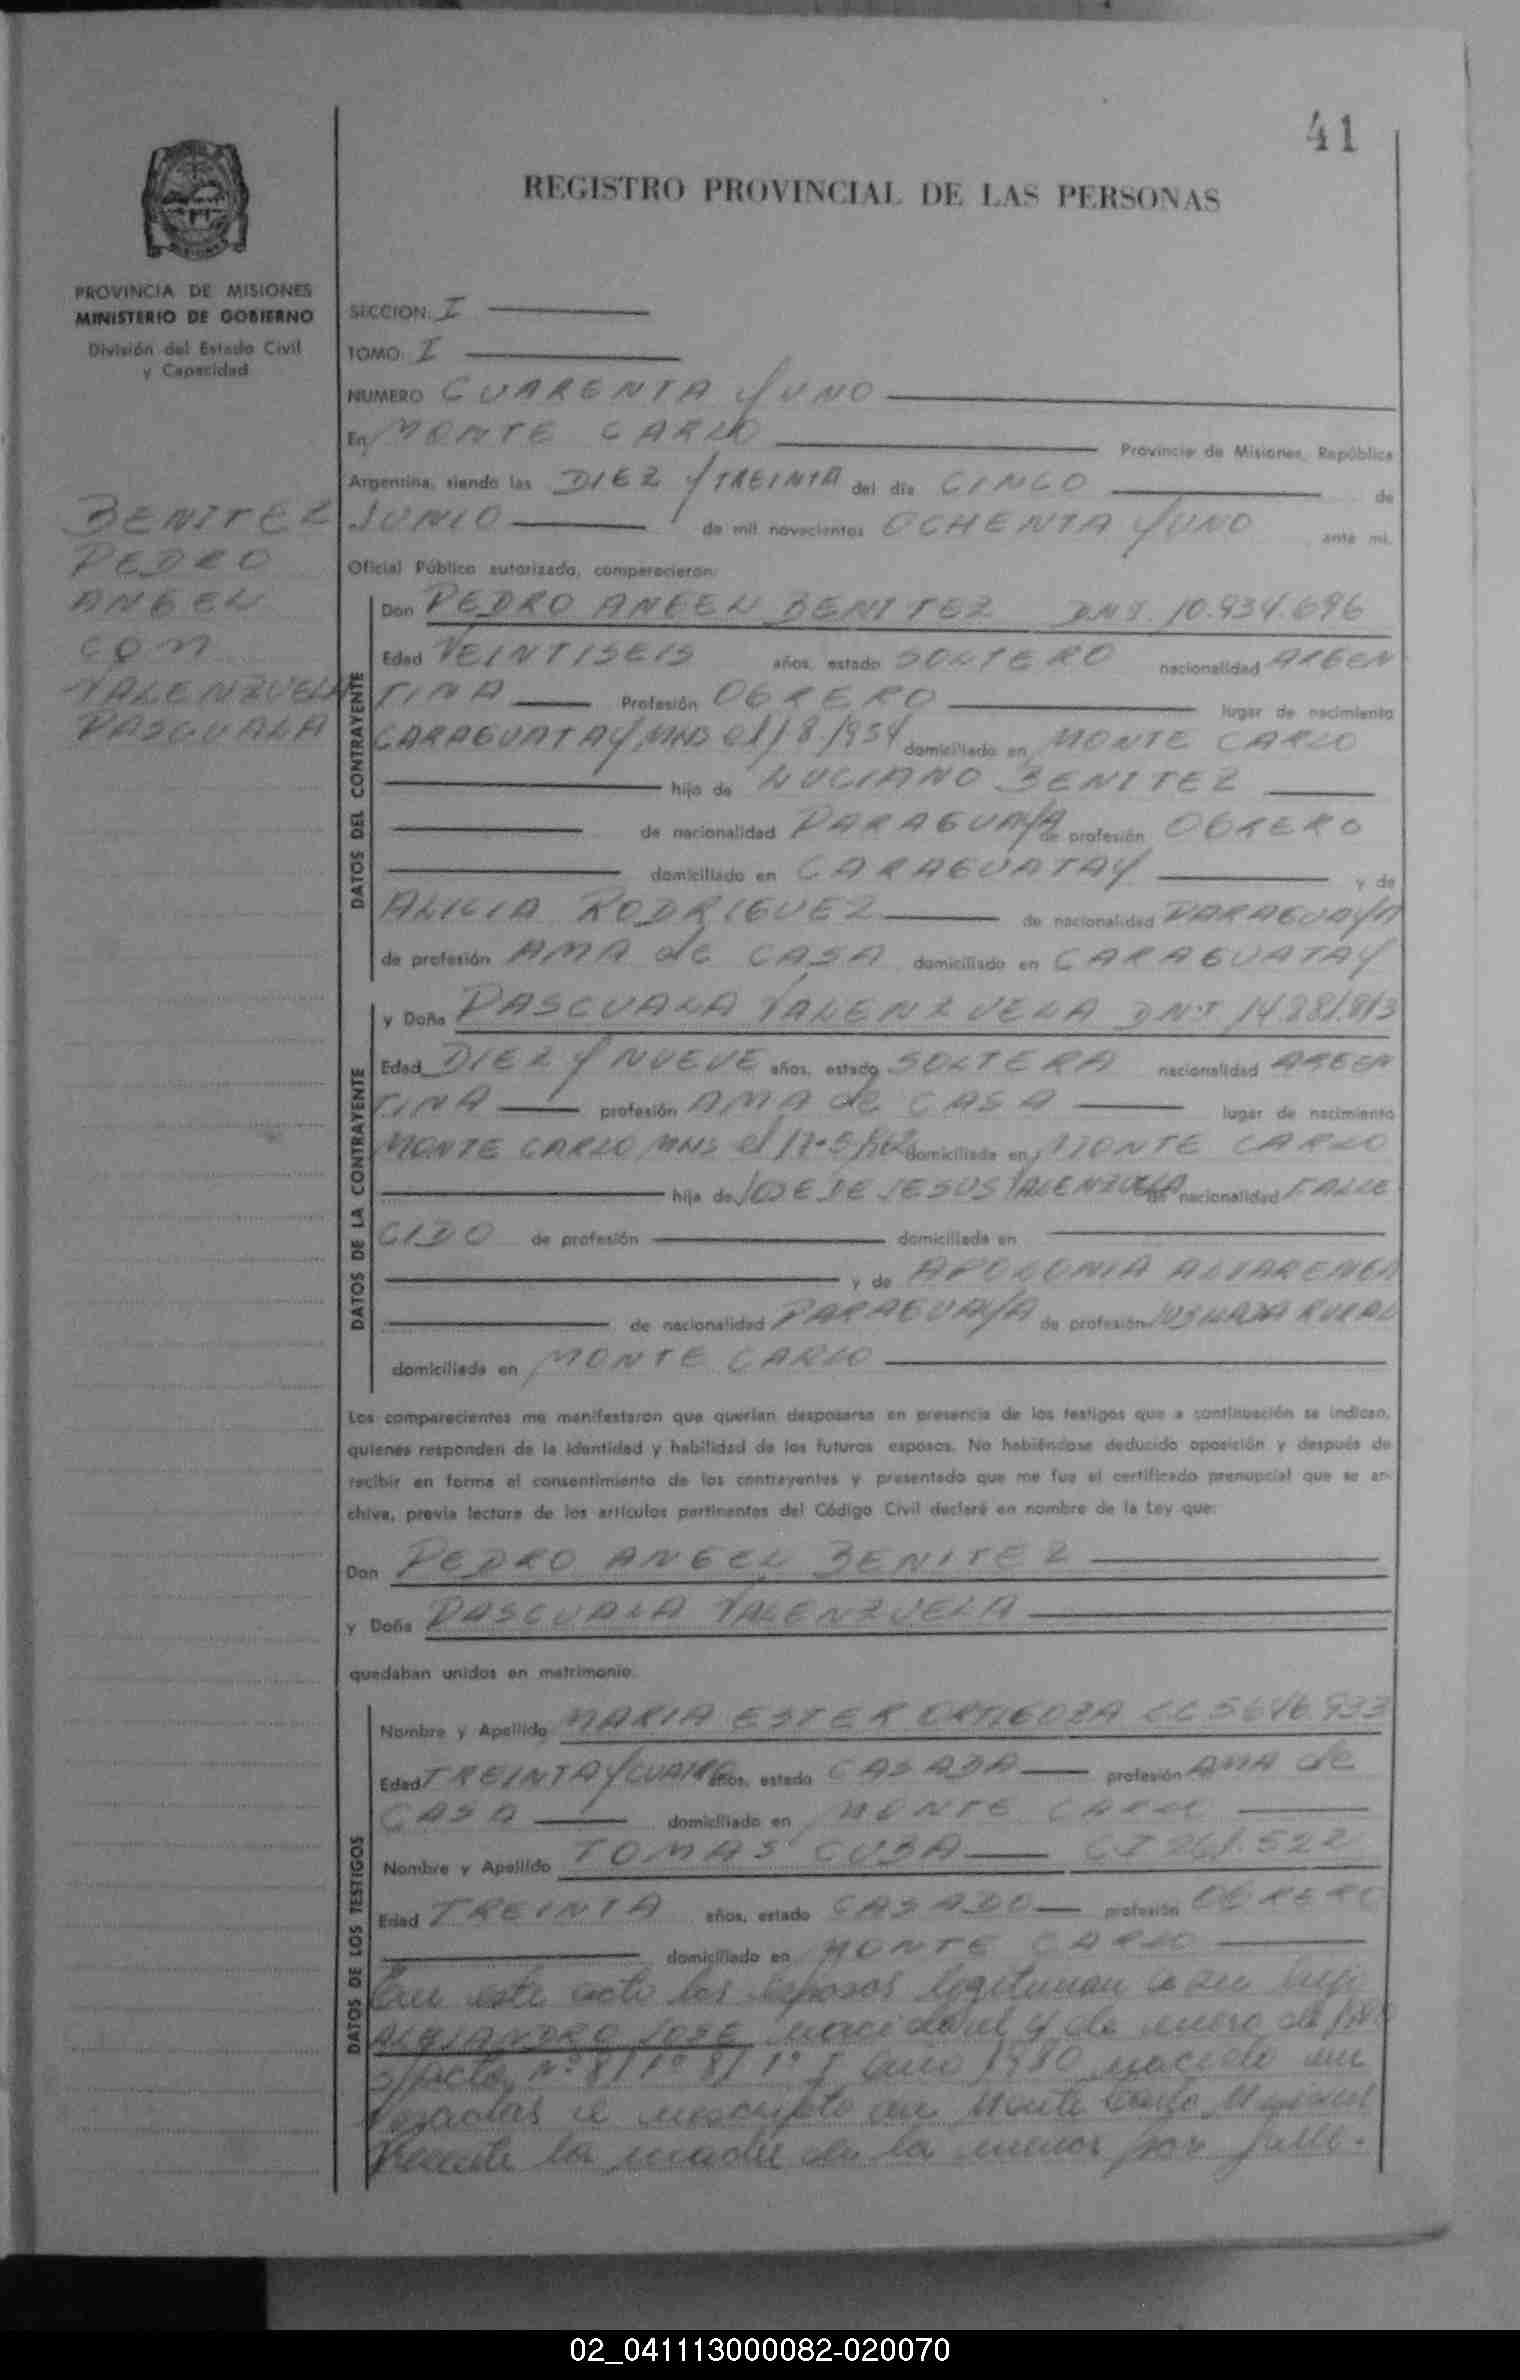 41
REGISTRO PROVINCIAL DE LAS PERSONAS
PROVINCIA DE MISIONES
MINISTERIO DE GOBIERNO
División del Estado Civil
y Capacidad
BENITEZ
PEDRO
ANGEL
con
VALENZUELA
PASCUALA
SECCION: I
TOMO: I
NUMERO CUARENTA Y UNO
En MONTE CARLO Provincia de Misiones, República
Argentina, siendo las DIEZ Y TREINTA del día CINCO de
JUNIO de mil novecientos OCHENTA Y UNO ante mí,
Oficial Público autorizado, comparecieron:
DATOS DEL CONTRAYENTE
Don PEDRO ANGEL BENITEZ DNI. 10.934.696
Edad VEINTISEIS años, estado SOLTERO nacionalidad ARGEN
TINA Profesión OBRERO lugar de nacimiento
CARAGUATAY, MNS el 1/8/1954 domiciliado en MONTE CARLO
hijo de LUCIANO BENITEZ
de nacionalidad PARAGUAYA de profesión OBRERO
domiciliado en CARAGUATAY y de
ALICIA RODRIGUEZ de nacionalidad PARAGUAYA
de profesión AMA de CASA domiciliado en CARAGUATAY
DATOS DE LA CONTRAYENTE
y Doña PASCUALA VALENZUELA DNI 14.881.813
Edad DIEZ Y NUEVE años, estado SOLTERA nacionalidad ARGEN
TINA profesión AMA de CASA lugar de nacimiento
MONTE CARLO MNS el 17-5-1962 domiciliada en MONTE CARLO
hija de JOSE DE JESUS VALENZUELA de nacionalidad FALLE
CIDO de profesión domiciliado en
y de APOLONIA ALVARENGA
de nacionalidad PARAGUAYA de profesión RURAL
domiciliada en MONTE CARLO
Los comparecientes me manifestaron que querían desposarse en presencia de los testigos que a continuación se indican,
quienes responden de la identidad y habilidad de los futuros esposos. No habiéndose deducido oposición y después de
recibir en forma el consentimiento de los contrayentes y presentado que me fue el certificado prenupcial que se ar-
chiva, previa lectura de los artículos pertinentes del Código Civil declaré en nombre de la Ley que:
Don PEDRO ANGEL BENITEZ
y Doña PASCUALA VALENZUELA
quedaban unidos en matrimonio.
DATOS DE LOS TESTIGOS
Nombre y Apellido MARIA ESTER ORTIGOZA LC 5646.933
Edad TREINTA Y CUATRO años, estado CASADA profesión AMA de
CASA domiciliado en MONTE CARLO
Nombre y Apellido TOMAS CUBA CI 261.522
Edad TREINTA años, estado CASADO profesión OBRERO
domiciliado en MONTE CARLO
En este acto los esposos legitiman a su hijo
ALEJANDRO JOSE nacido el 4 de enero de
acta nº 81 Año 1980 nacido en
Posadas e inscripto en Monte Carlo Misiones
Presente la madre de la menor por falle-
02_041113000082-020070